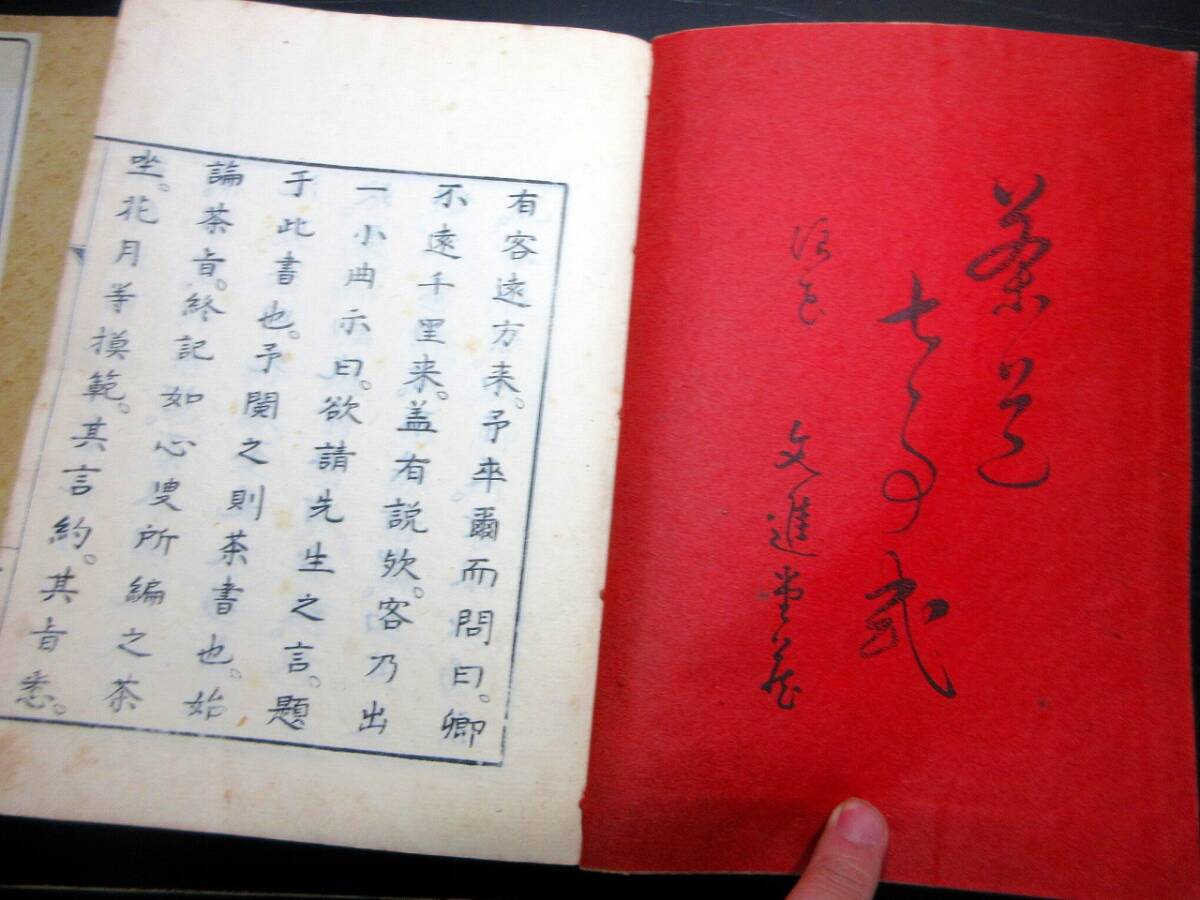 茶道
七事式
浪花 文進堂蔵
有客遠方来。予率爾而問曰。卿
不遠千里来。盖有説欤。客乃出
一小冊示曰。欲請先生之言。題
于此書也。予閲之則茶書也。始
論茶旨。終記如心叟所編之茶
坐。花月等摸範。其言約。其旨悉。